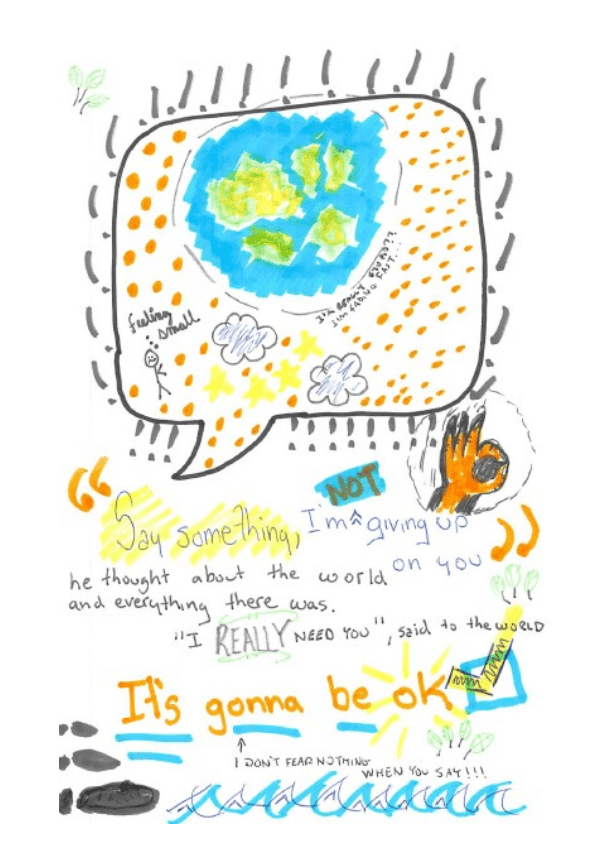 feeling
small
I'm really around??
I'm fading fast...!
NOT
Say something, I'm ^ giving up
on you
he thought about the world
and everything there was.
"I REALLY NEED YOU", said to the WORLD
It's gonna be OK
↑
I DON'T FEAR NOTHING
WHEN YOU SAY!!!